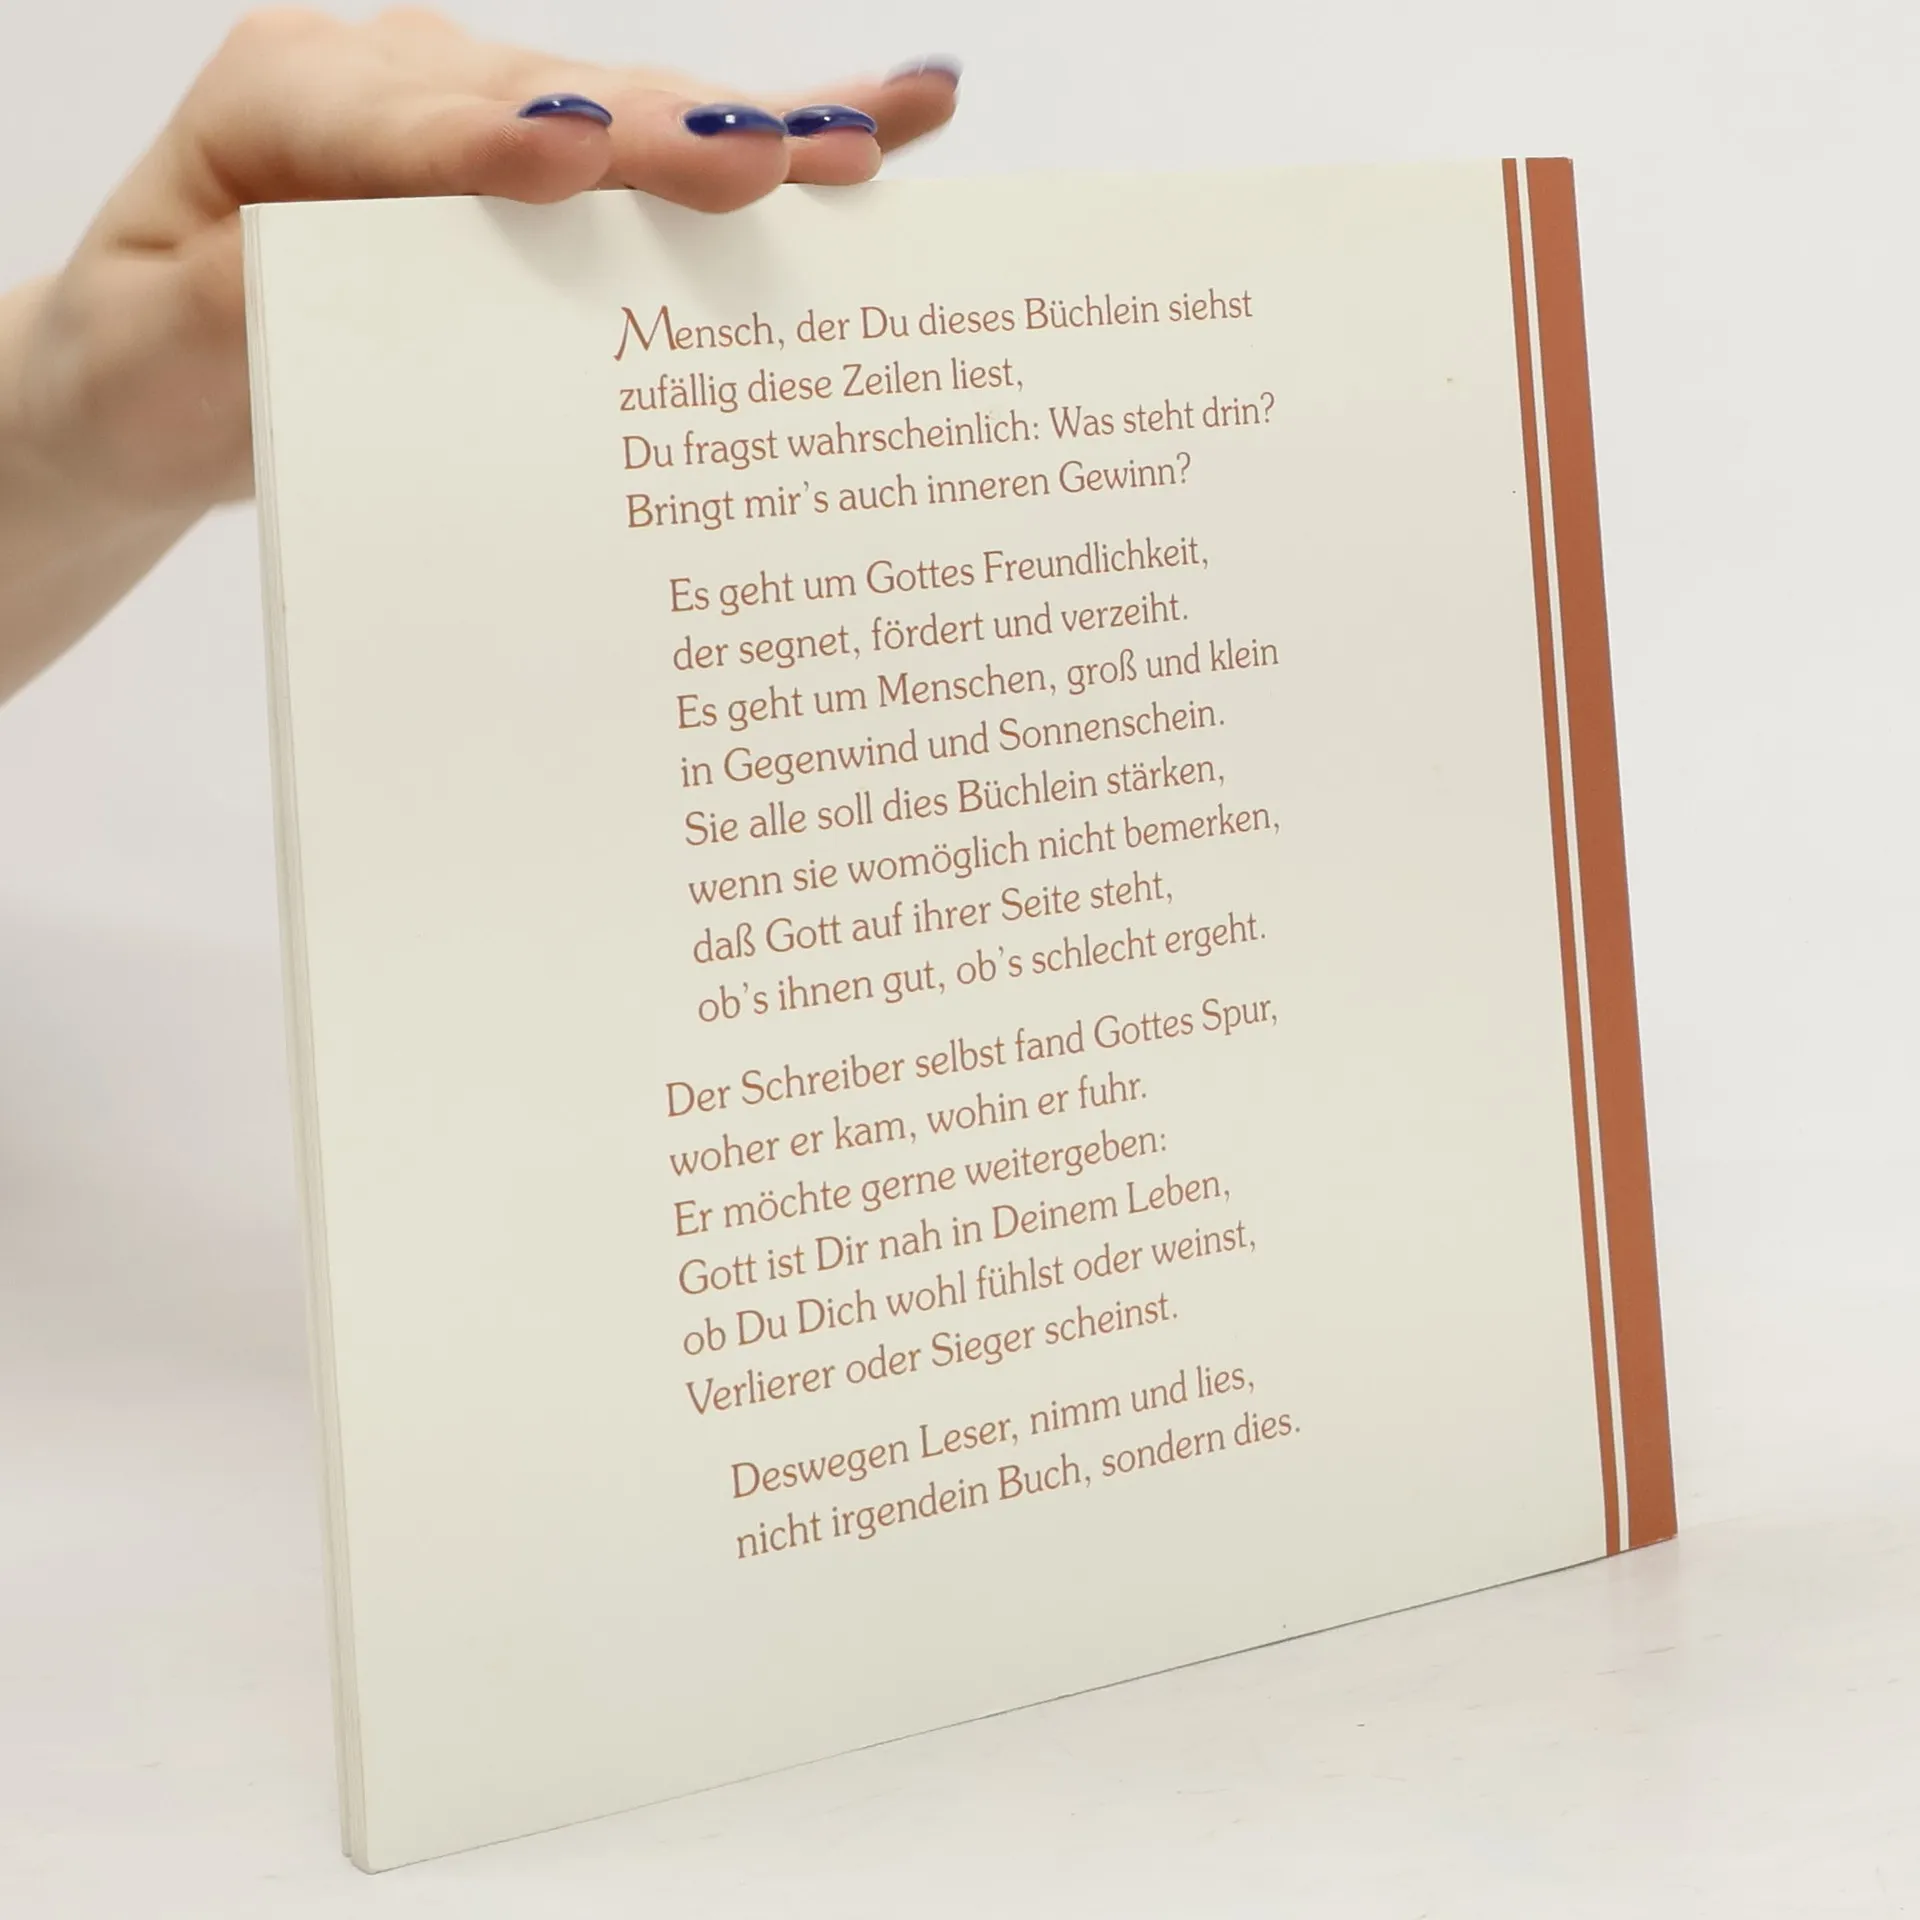 Mensch, der Du dieses Büchlein siehst
zufällig diese Zeilen liest,
Du fragst wahrscheinlich: Was steht drin?
Bringt mir's auch inneren Gewinn?
Es geht um Gottes Freundlichkeit,
der segnet, fördert und verzeiht.
Es geht um Menschen, groß und klein
in Gegenwind und Sonnenschein.
Sie alle soll dies Büchlein stärken,
wenn sie womöglich nicht bemerken,
daß Gott auf ihrer Seite steht,
ob's ihnen gut, ob's schlecht ergeht.
Der Schreiber selbst fand Gottes Spur,
woher er kam, wohin er fuhr.
Er möchte gerne weitergeben:
Gott ist Dir nah in Deinem Leben,
ob Du Dich wohl fühlst oder weinst,
Verlierer oder Sieger scheinst.
Deswegen Leser, nimm und lies,
nicht irgendein Buch, sondern dies.